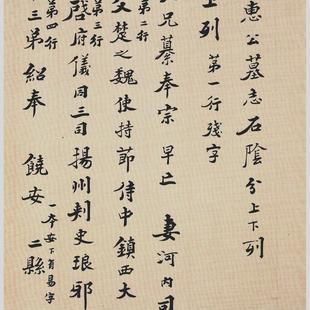 惠公墓志石陰分上下列
上列 第一行殘字
兄 纂 奉宗 早亡 妻河內司
第二行
父楚之魏使持節侍中鎮西大
第三行
啓府儀同三司揚州刺史琅邪
第四行
三弟紹奉 饒安 二縣
一本安下有易字